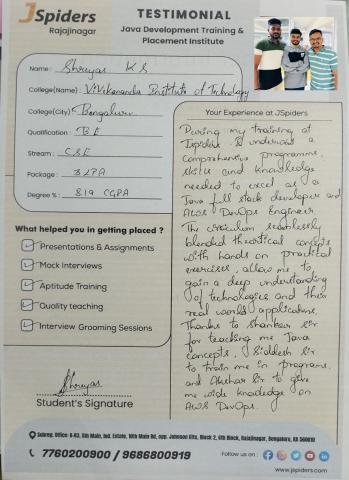 JSpiders
Rajajinagar
TESTIMONIAL
Java Development Training &
Placement Institute
Name : Shreyas K S
College(Name) : Vivekananda Institute of Technology
College(City) : Bengaluru
Qualification : BE
Stream : CSE
Package : 3LPA
Degree % : 8.19 CGPA
What helped you in getting placed ?
Presentations & Assignments
Mock Interviews
Aptitude Training
Quality teaching
Interview Grooming Sessions
Shreyas
Student's Signature
Your Experience at JSpiders
During my training at
Jspiders I underwent a
comprehensive programme,
skills and knowledge
needed to excel as a
Java full stack developer and
AWS DevOps Engineer.
The curriculum seamlessly
blended theortical concepts
with hands on practical
exercises, allow me to
gain a deep understanding
of technologies and their
real world applications.
Thanks to Shankar sir
for teaching me Java
concepts, Siddesh Sir
to train me in programs,
and Akshar Sir to give
me wide knowledge on
AWS DevOps.
Subreg. Office: #-93, 5th Main, Ind. Estate, 10th Main Rd, opp. Johnson Lifts, Block 2, 6th Block, Rajajinagar, Bengaluru, KA 560010
7760200900 / 9686800919
Follow us on :
www.jspiders.com